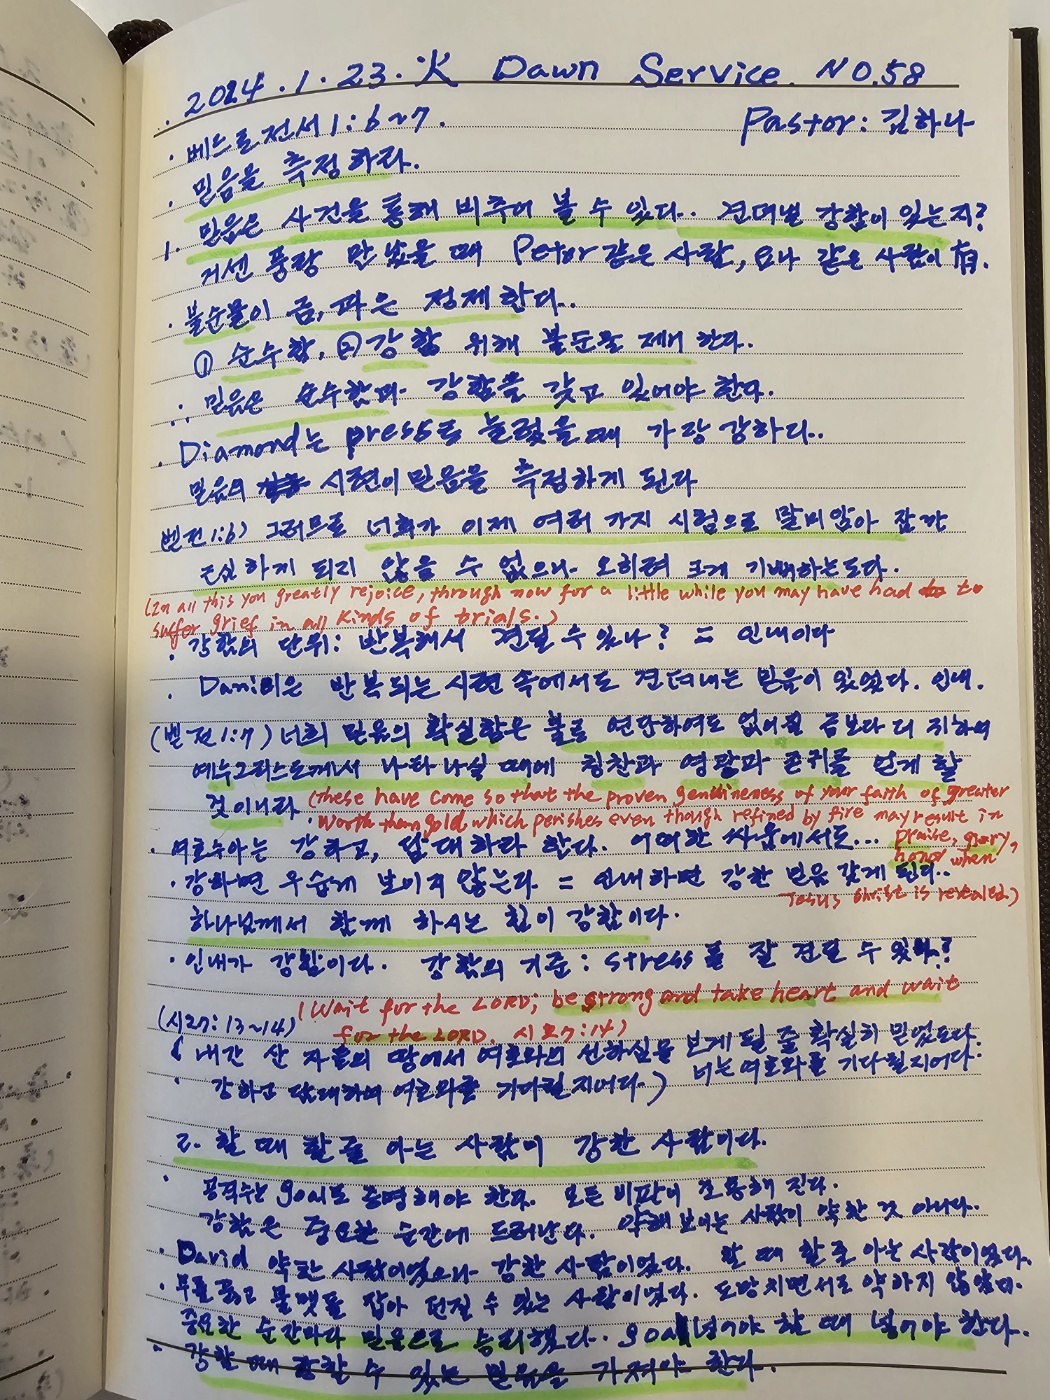 2024.1.23.火 Dawn Service. NO.58
· 베드로전서 1:6~7. Pastor: 김하나
· 믿음을 측정하라.
1. 믿음은 사건을 통해 비추어 볼 수 있다. 견뎌낼 강함이 있는지?
거센 풍랑 만났을 때 Peter 같은 사람, 요나 같은 사람이 有.
· 불순물이 금, 파은 정제한다..
① 순수함, ② 강함 위해 불순물 제거한다.
∴ 믿음은 순수함과 강함을 갖고 있어야 한다.
· Diamond는 press로 눌렀을 때 가장 강하다..
믿음의 시련이 믿음을 측정하게 된다
벧전1:6) 그러므로 너희가 이제 여러 가지 시험으로 말미암아 잠깐
근심하게 되지 않을 수 없으나 오히려 크게 기뻐하는도다.
(In all this you greatly rejoice, through now for a little while you may have had to
suffer grief in all kinds of trials.)
· 강함의 단위: 반복해서 견딜 수 있나? = 인내이다
· Daniel은 반복되는 시련 속에서도 견뎌내는 믿음이 있었다. 인내.
(벧전1:7) 너희 믿음의 확실함은 불로 연단하여도 없어질 금보다 더 귀하여
예수 그리스도께서 나타나실 때에 칭찬과 영광과 존귀를 얻게 할
것이니라 (These have come so that the proven genuineness of your faith of greater
worth than gold, which perishes even though refined by fire may result in
· 여호수아는 강하고, 담대하라 한다. 어떠한 싸움에서도... praise, glory,
honor when
· 강하면 우습게 보이지 않는다 = 인내하면 강한 믿음 갖게 된다..
Jesus Christ is revealed.)
하나님께서 함께 하시는 힘이 강함이다.
· 인내가 강함이다. 강함의 기준: stress를 잘 견딜 수 있나?
(Wait for the LORD; be strong and take heart and wait
(시27:13~14) for the LORD. 시27:14)
( 내간 산 자들의 땅에서 여호와의 선하심을 보게 될 줄 확실히 믿었도다
· 너는 여호와를 기다릴지어다
강하고 담대하며 여호와를 기다릴지어다.)
2. 할 때 할 줄 아는 사람이 강한 사람이다.
· 공격수는 goal로 증명해야 한다. 모든 비판이 조용해 진다.
강함은 중요한 순간에 드러난다. 약해 보이는 사람이 약한 것 아니다.
· David 약한 사람이었으나 강한 사람이었다. 할 때 할 줄 아는 사람이었다.
· 무릎 꿇고 물맷돌 잡아 던질 수 있는 사람이었다. 도망치면서도 약하지 않았다.
중요한 순간마다 믿음으로 승리했다. goal넣어야 할 때 넣어야 한다.
· 강할 때 강할 수 있는 믿음을 가져야 한다.